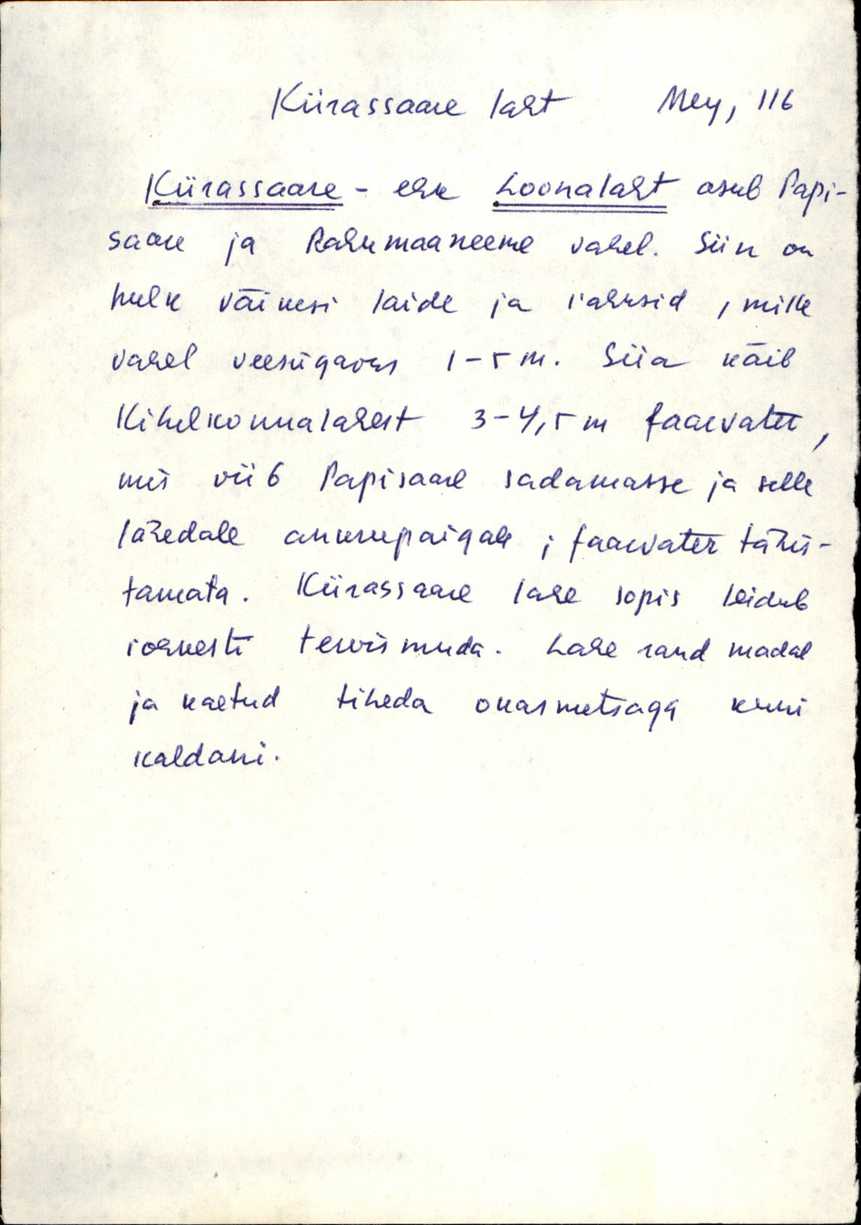 Kiirassaare laht Mey, 116
Kiirassaare - ehk Loonalaht asub Papi-
saare ja Rahumaaneeme vahel. Siin on
hulk väikesi laide ja rahusid, mille
vahel veesügavus 1-5 m. Siia käib
Kihelkonnalahest 3-4,5 m faarvater,
mis viib Papisaare sadamasse ja selle
lähedale ankrupaigale; faarvater tähis-
tamata. Kiirassaare lahe sopis leidub
rohkesti tervismuda. Lahe rand madal
ja kaetud tiheda okasmetsaga kuni
kaldani.